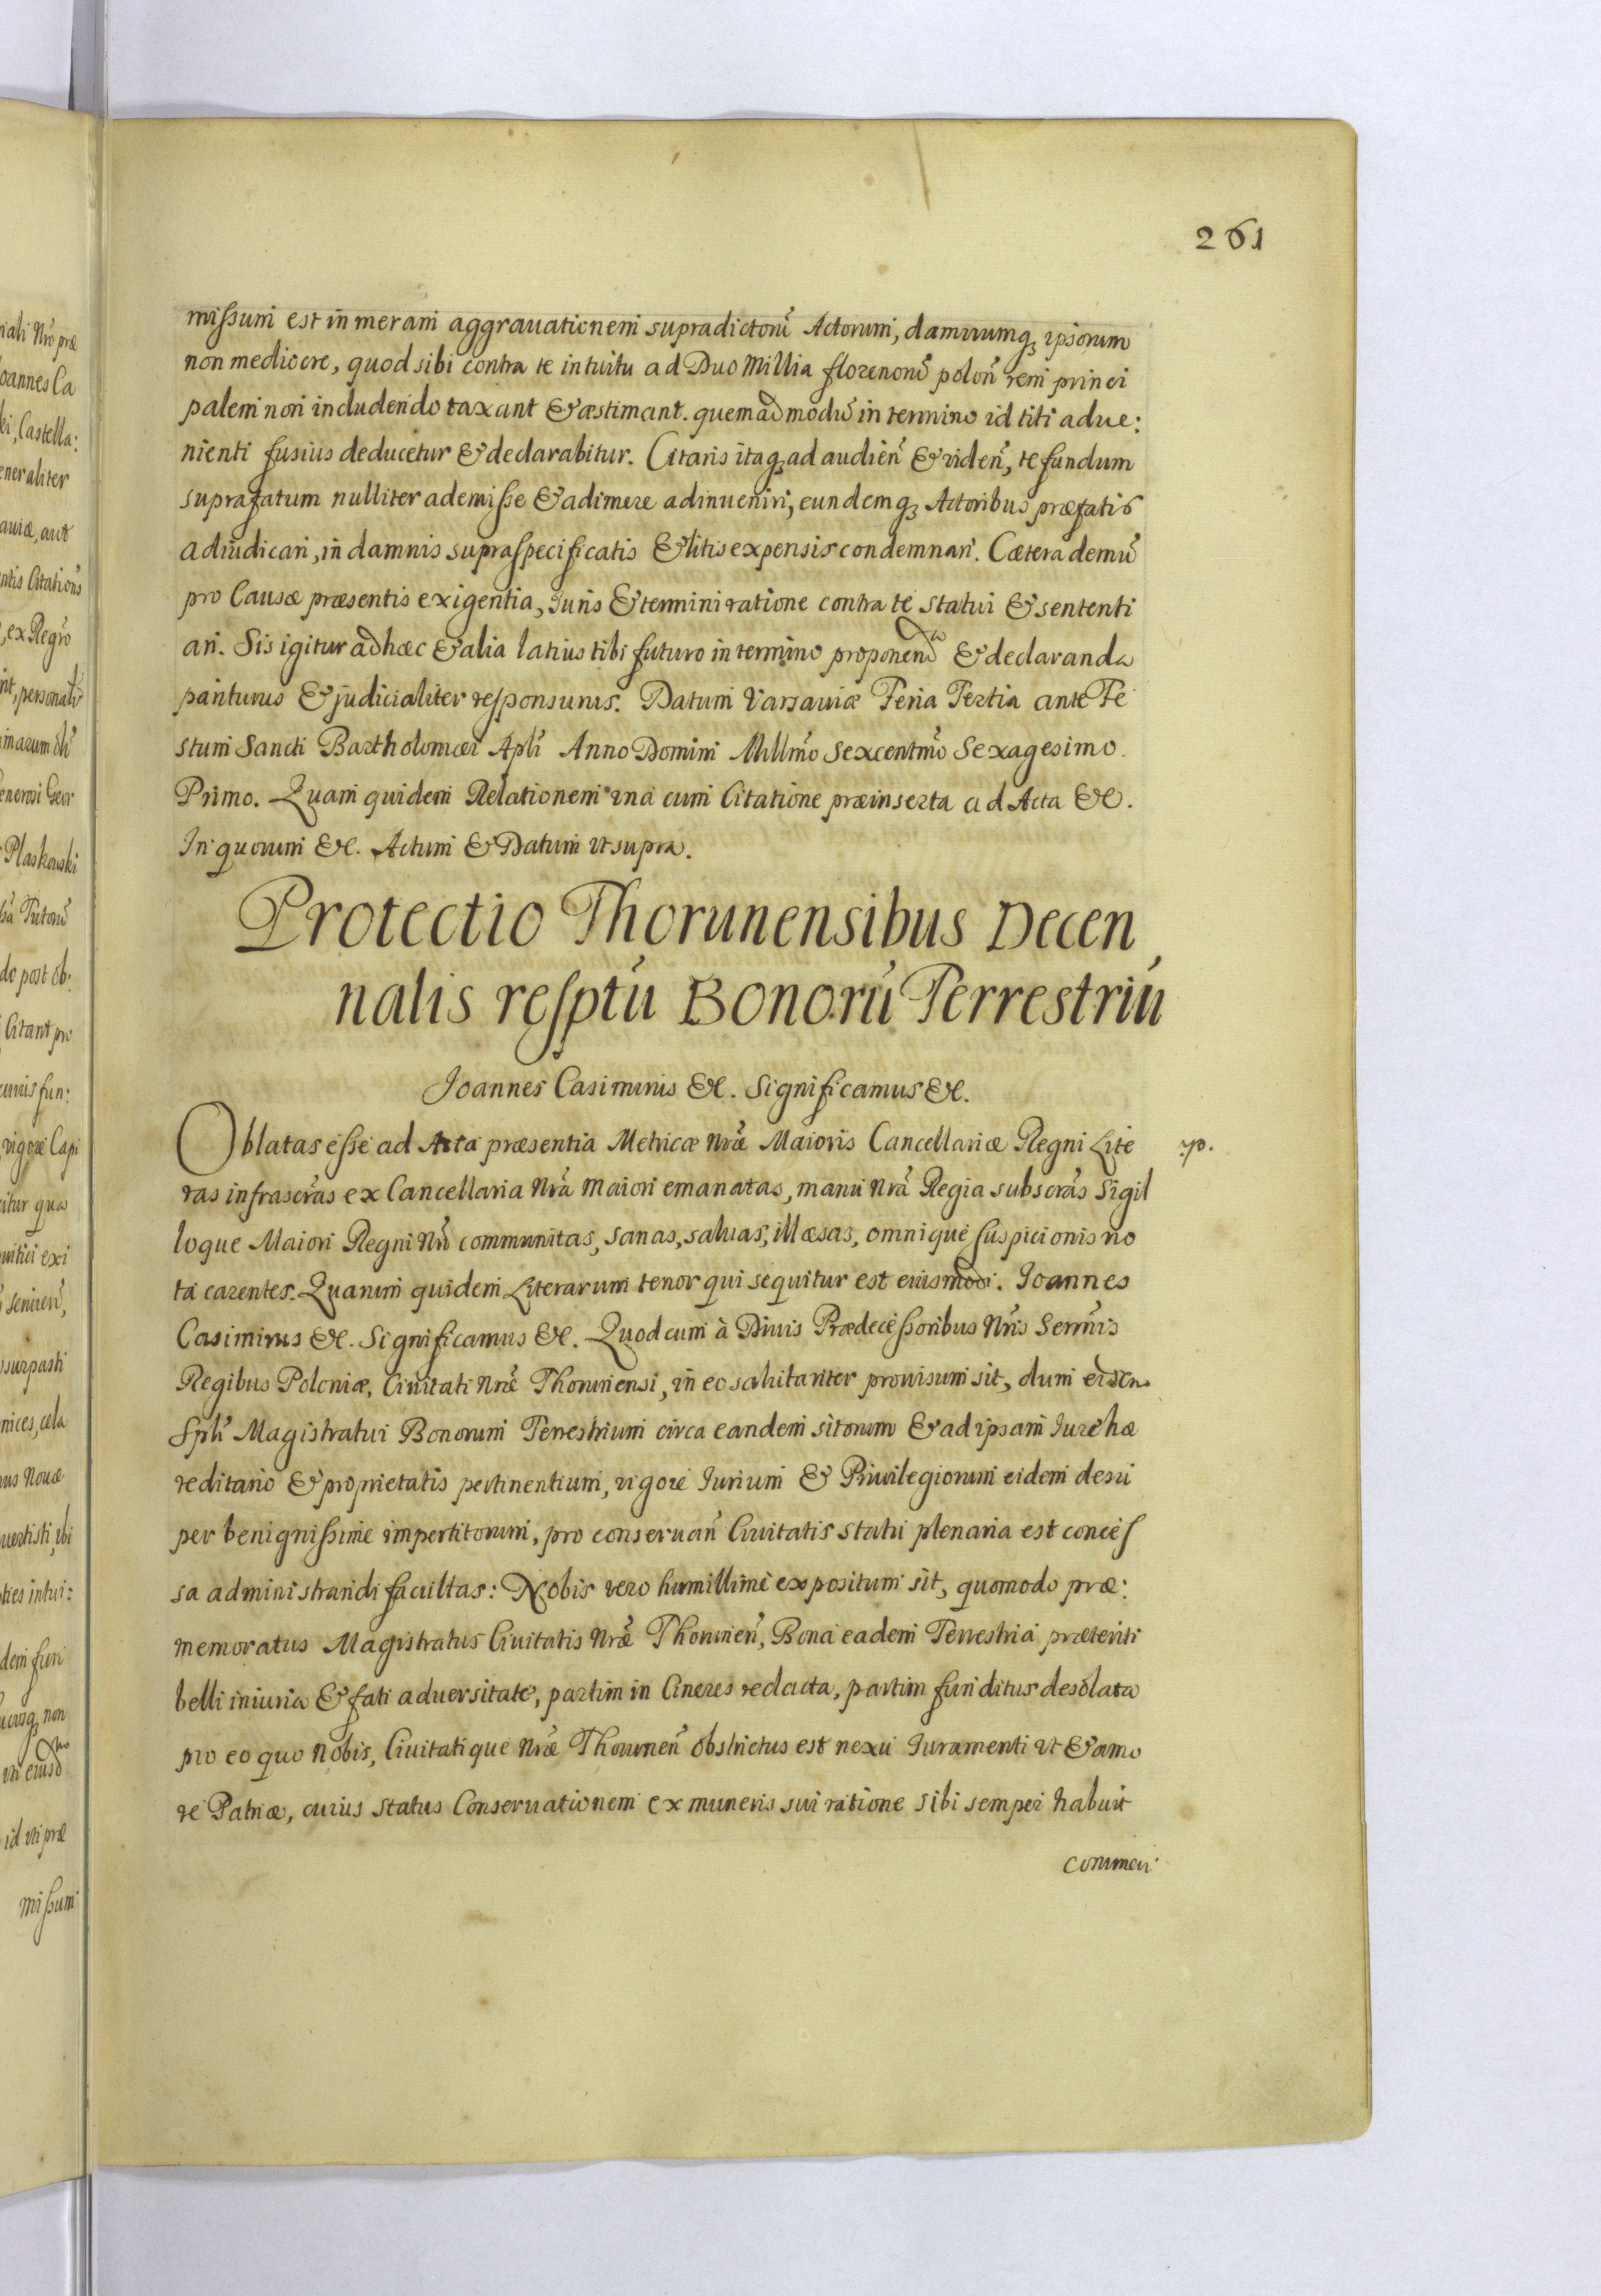 261
missum est in meram aggrauationem supradictorũ Actorum, damnumqꝫ ipsorum
non mediocre, quod sibi contra te intuitu ad Duo Millia florenorũ polon̄ rem princi
palem non includendo taxant & æstimant. quemadmodũ in termino id titi adue:
nienti fusius deducetur & declarabitur. Citaris itaqꝫ ad audien̄ & viden̄, te fundum
suprafatum nulliter ademisse & adimere adinueniri, eundemqꝫ Actoribus præfatis
adiudicari, in damnis supraspecificatis & litis expensis condemnari. Cætera demũ
pro Causæ præsentis exigentia, Iuris & termini ratione contra te statui & sententi
ari. Sis igitur ad hæc & alia latius tibi futuro in termino proponenda & declaranda
pariturus & judicialiter responsurus. Datum Varsauiæ Feria Tertia ante Fe
stum Sancti Bartholomæi Apłi Anno Domini Millm̃o Sexcentm̃o Sexagesimo
Primo. Quam quidem Relationem vna cum Citatione præinserta ad Acta &c.
In quorum &c. Actum & Datum vt supra.
Protectio Thorunensibus Decen
nalis resptũ Bonorũ Terrestriũ
Joannes Casimirus &c. Significamus &c.
Oblatas esse ad Acta præsentia Metricæ Nr̃æ Maioris Cancellariæ Regni Lite
70.
ras infrascr̃as ex Cancellaria Nr̃a Maiori emanatas, manu Nr̃a Regia subscr̃as Sigil
loque Maiori Regni Nr̃i communitas, sanas, saluas, illæsas, omnique suspicionis no
ta carentes. Quarum quidem Literarum tenor qui sequitur est eiusmodi. Joannes
Casimirus &c. Significamus &c. Quod cum à Diuis Prædecessoribus Nr̃is Serm̃is
Regibus Poloniæ, Ciuitati Nr̃æ Thoruniensi, in eo salutariter prouisum sit, dum eidem
Spłi Magistratui Bonorum Terrestrium circa eandem sitorum & ad ipsam Iure hæ
reditario & proprietatis pertinentium, vigore Iurium & Priuilegiorum eidem desu
per benignissime impertitorum, pro conseruan̄ Ciuitatis statu plenaria est conces
sa administrandi facultas: Nobis vero humillime expositum sit, quomodo præ:
memoratus Magistratus Ciuitatis Nr̃æ Thorunen̄, Bona eadem Terrestria præteriti
belli iniuria & fati aduersitate, partim in Cineres redacta, partim funditus desolata
pro eo quo Nobis, Ciuitatique Nr̃æ Thorunen̄ obstrictus est nexu Iuramenti vt & amo
re Patriæ, cuius status Conseruationem ex muneris sui ratione sibi semper habuit
commen